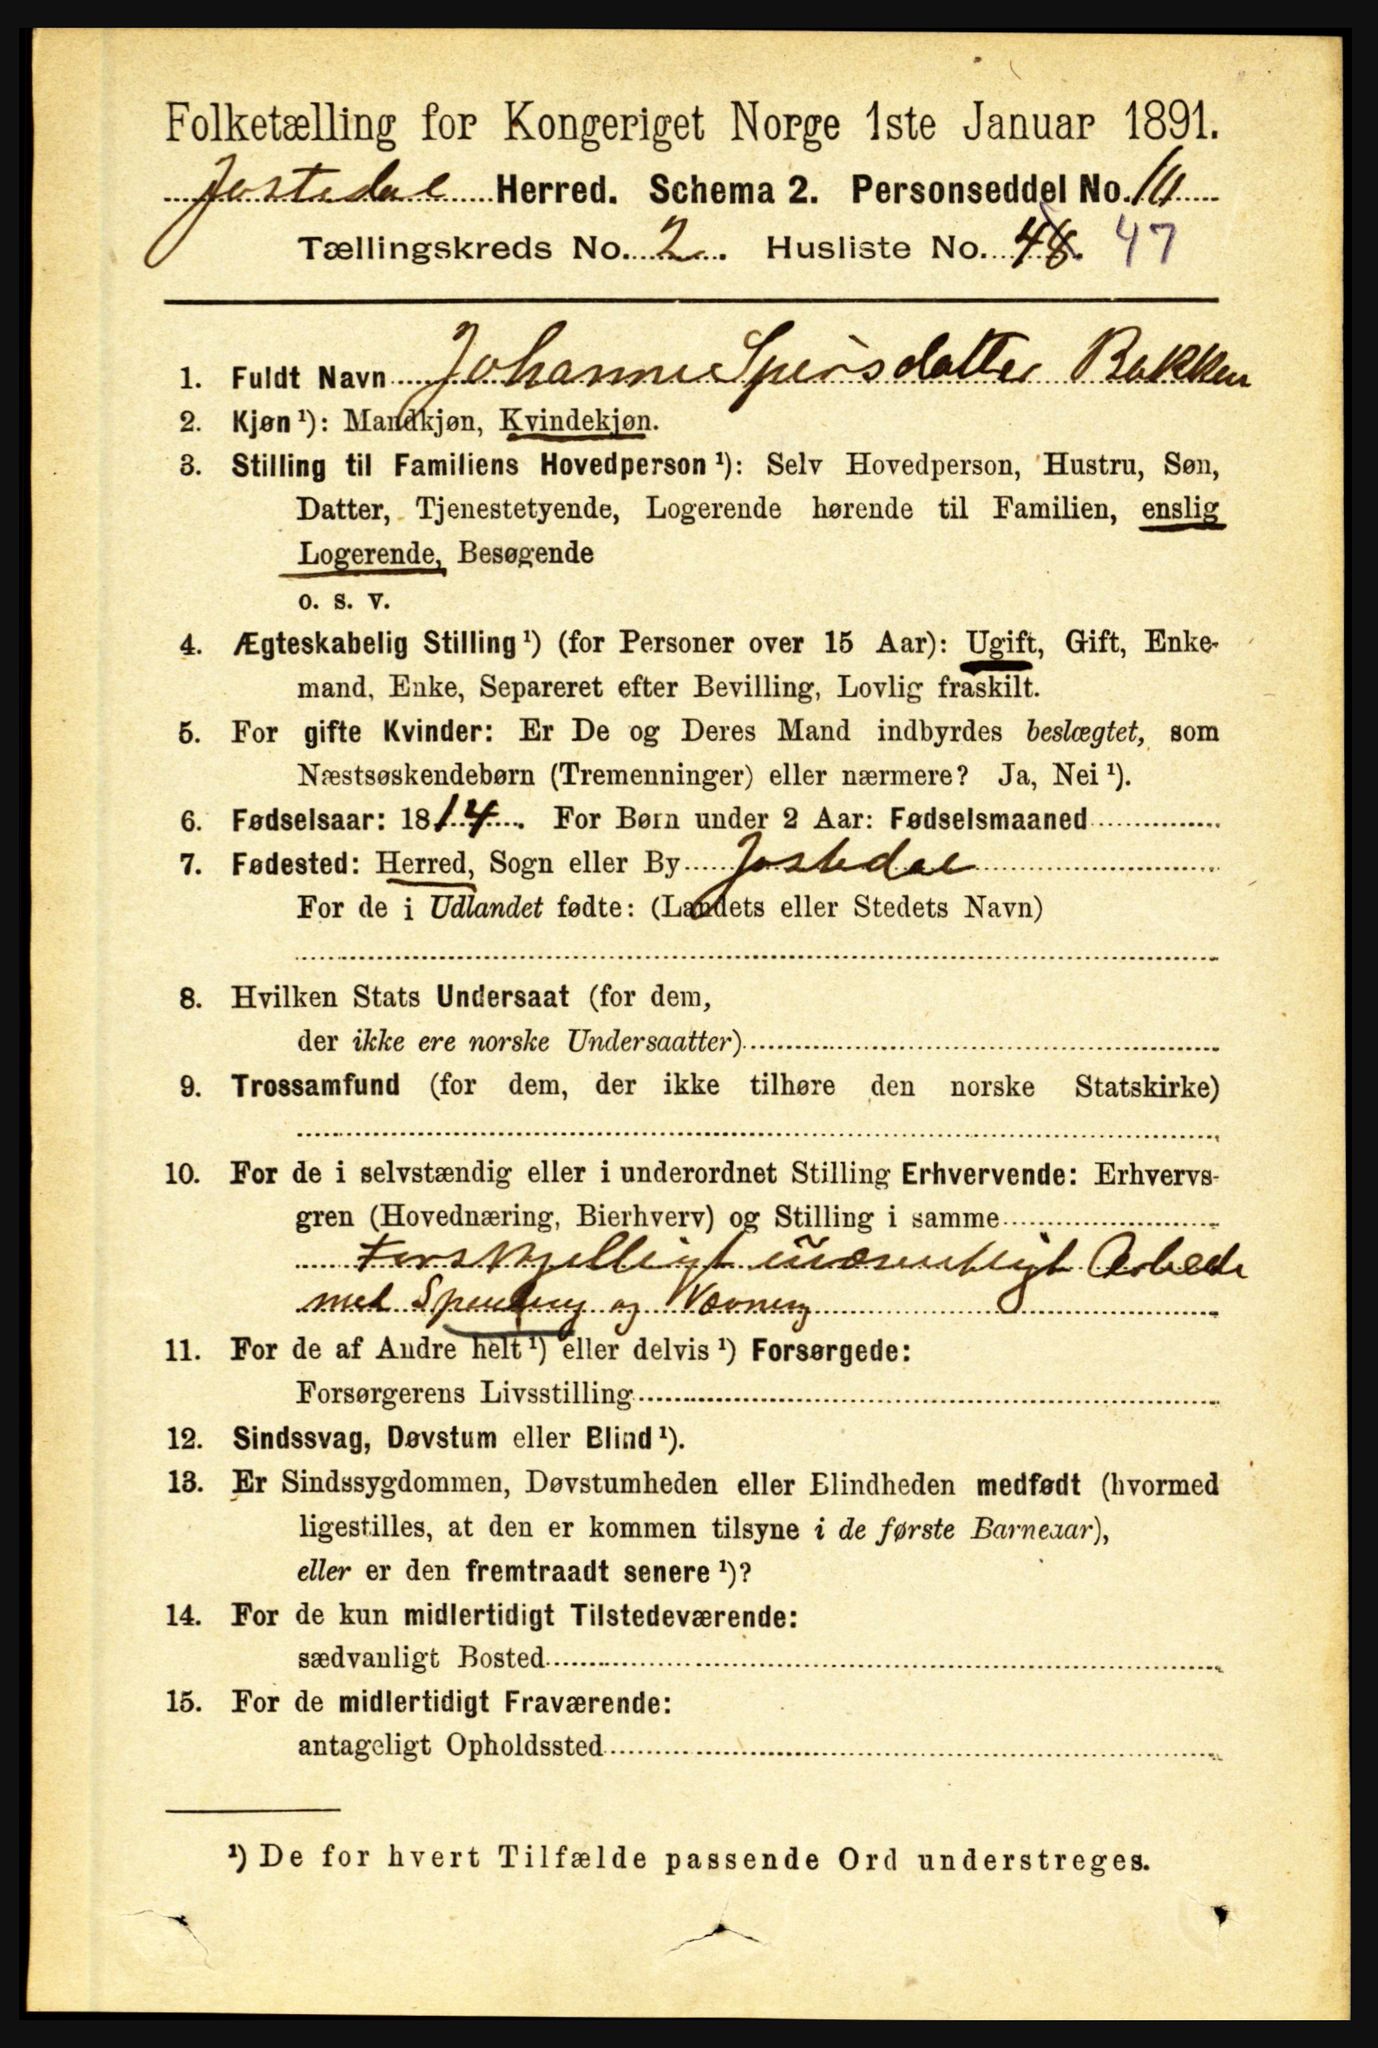 Folketælling for Kongeriget Norge 1ste Januar 1891.
Jostedal Herred. Schema 2. Personseddel No. 10
Tællingskreds No. 2. Husliste No. 48. 47
1. Fuldt Navn Johanne Spersdatter Bakken
2. Kjøn ¹): Mandkjøn, Kvindekjøn.
3. Stilling til Familiens Hovedperson ¹): Selv Hovedperson, Hustru, Søn,
Datter, Tjenestetyende, Logerende hørende til Familien, enslig
Logerende, Besøgende
o. s. v.
4. Ægteskabelig Stilling ¹) (for Personer over 15 Aar): Ugift, Gift, Enke-
mand, Enke, Separeret efter Bevilling, Lovlig fraskilt.
5. For gifte Kvinder: Er De og Deres Mand indbyrdes beslægtet, som
Næstsøskendebørn (Tremenninger) eller nærmere? Ja, Nei ¹).
6. Fødselsaar: 1814. For Børn under 2 Aar: Fødselsmaaned
7. Fødested: Herred, Sogn eller By Jostedal
For de i Udlandet fødte: (Landets eller Stedets Navn)
8. Hvilken Stats Undersaat (for dem,
der ikke ere norske Undersaatter)
9. Trossamfund (for dem, der ikke tilhøre den norske Statskirke)
10. For de i selvstændig eller i underordnet Stilling Erhvervende: Erhvervs-
gren (Hovednæring, Bierhverv) og Stilling i samme
Forskjelligt uvæsentligt Arbeide
med Spinding og Vævning
11. For de af Andre helt ¹) eller delvis ¹) Forsørgede:
Forsørgerens Livsstilling
12. Sindssvag, Døvstum eller Blind ¹).
13. Er Sindssygdommen, Døvstumheden eller Blindheden medfødt (hvormed
ligestilles, at den er kommen tilsyne i de første Barneaar),
eller er den fremtraadt senere ¹)?
14. For de kun midlertidigt Tilstedeværende:
sædvanligt Bosted
15. For de midlertidigt Fraværende:
antageligt Opholdssted
¹) De for hvert Tilfælde passende Ord understreges.